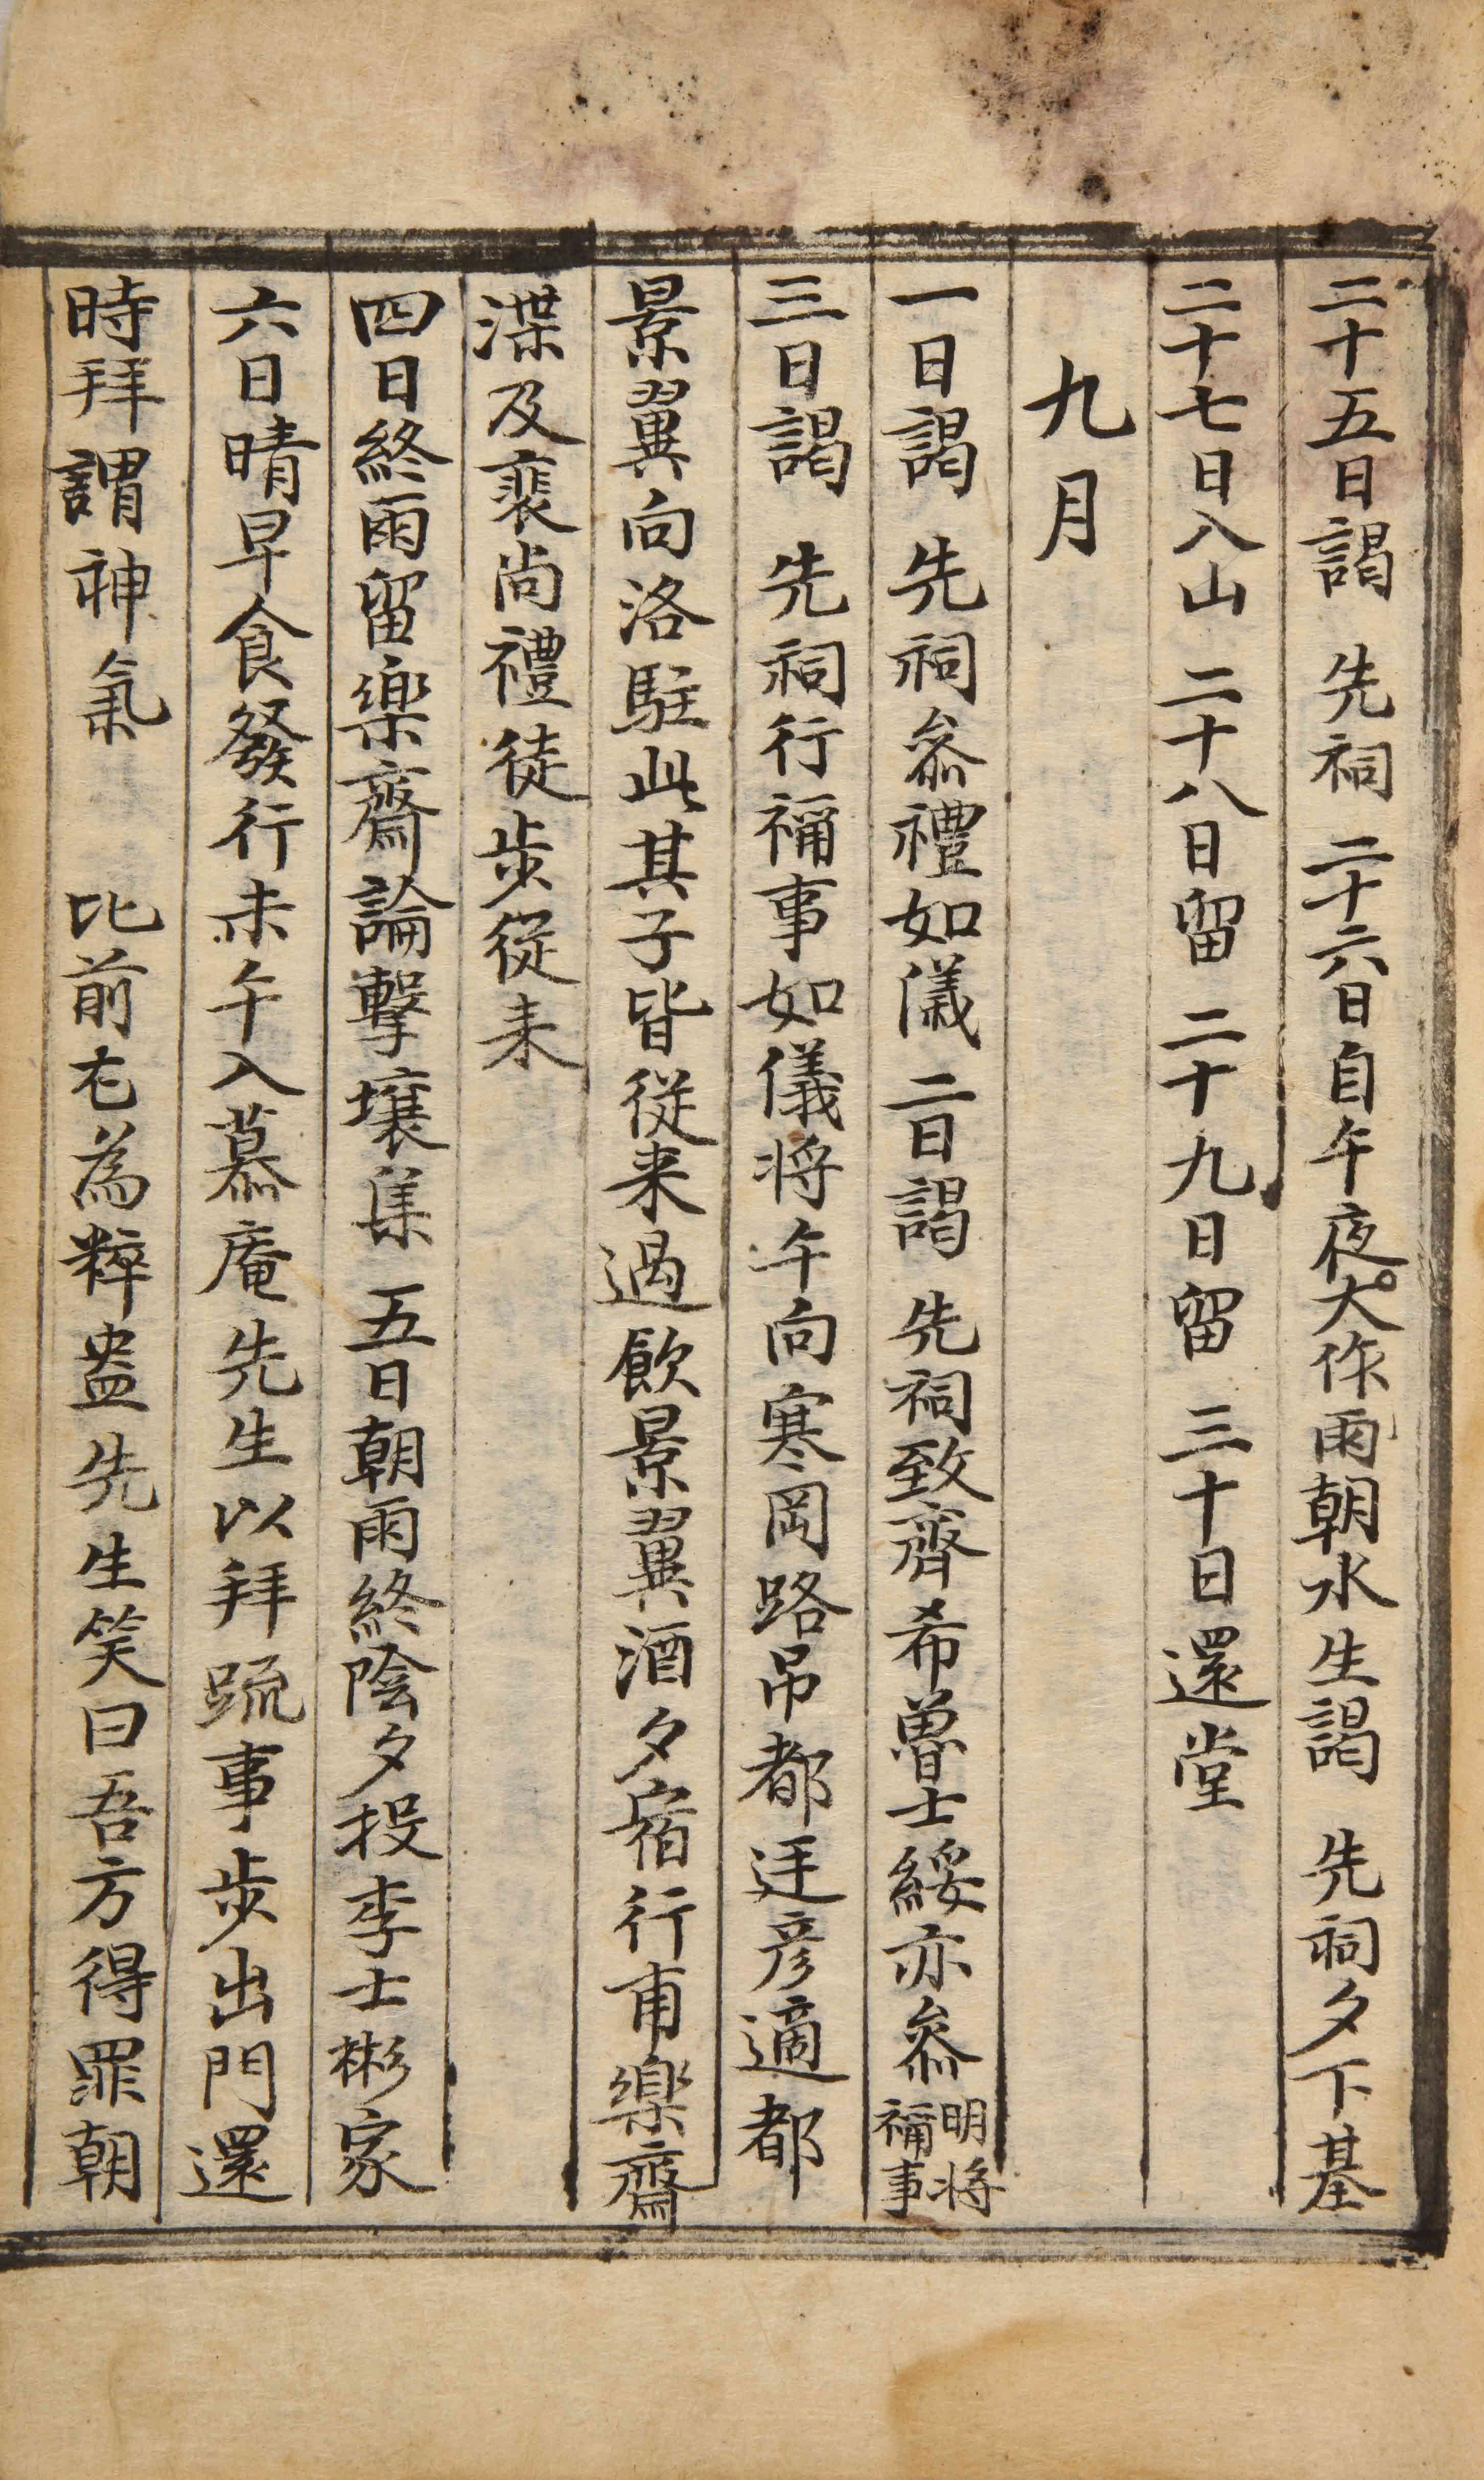 二十五日謁　先祠　二十六日自午夜大作雨朝水生謁　先祠夕下基
二十七日入山　二十八日留　二十九日留　三十日還堂
九月
一日謁　先祠叅禮如儀　二日謁　先祠致齊希魯士綏亦叅明將禰事
三日謁　先祠行禰事如儀將午向寒岡路吊都廷彦適都
景翼向洛駐此其子皆從来過飲景翼酒夕宿行甫樂齋
渫及裵尚禮徒步從来
四日終雨留樂齋論擊壤集　五日朝雨終陰夕投李士彬家
六日晴早食發行未午入慕庵先生以拜䟽事步出門還
時拜謂神氣　比前尤為粹盎先生笑曰吾方得罪朝